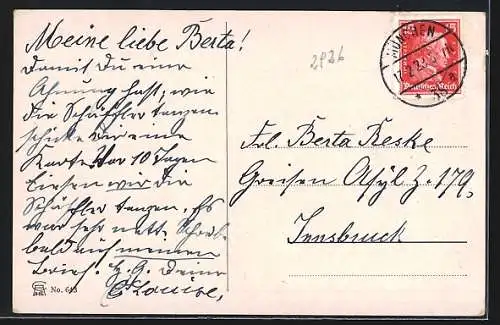 Meine liebe Berta!
Damit Du eine
Ahnung hast, wie
die Schäffler tanzen
schicke Dir eine
Karte. Vor 10 Tagen
liesen wir die
Schäffler tanzen, Es
war sehr nett. Schreib
bald auf meinen
Brief. H. G. Deine
Louise,
No. 613
MÜNCHEN
Deutsches Reich
Frl. Berta Reske
Greisen Asyl Z. 179,
Innsbruck